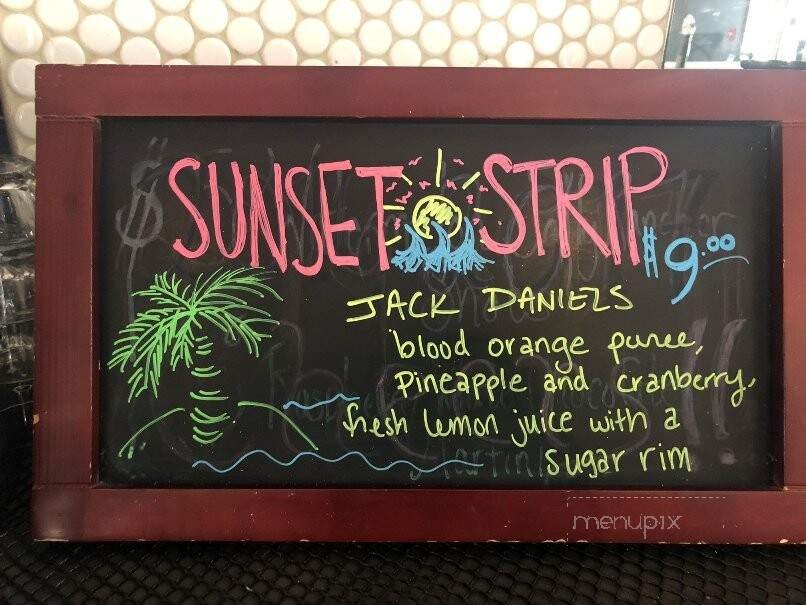 SUNSET STRIP
$9.00
JACK DANIELS
blood orange puree,
Pineapple and cranberry,
fresh lemon juice with a
sugar rim
menupix